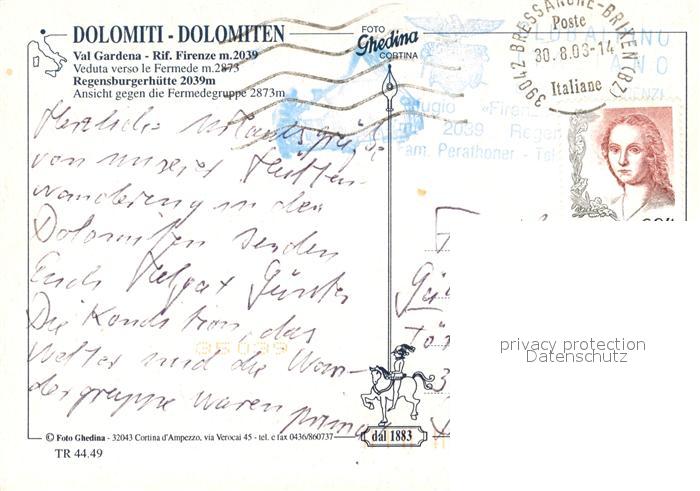 DOLOMITI - DOLOMITEN
Val Gardena - Rif. Firenze m.2039
Veduta verso le Fermede m.2873
Regensburgerhütte 2039m
Ansicht gegen die Fermedegruppe 2873m
FOTO
Ghedina
CORTINA
39042-BRESSANONE-BRIXEN (BZ)
Poste
30.8.03-14
Italiane
CLUB ALPINO
Rifugio «Firenze
m. 2039 Regen
Fam. Perathoner - Tel
Herzliche Urlaubsgrüße
von unserer Hütten-
wanderung in den
Dolomiten senden
Euch Helga + Günter
Die Kondition, das
Wetter und die Wan-
dergruppe waren prima
35039
privacy protection
Datenschutz
dal 1883
© Foto Ghedina - 32043 Cortina d'Ampezzo, via Verocai 45 - tel. e fax 0436/860737
TR 44.49